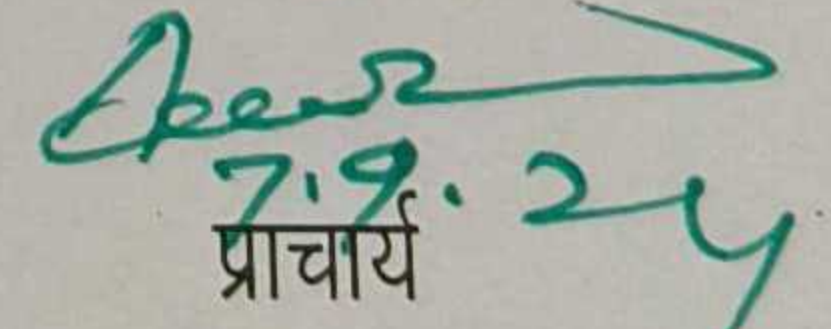 7.9.24
प्राचार्य